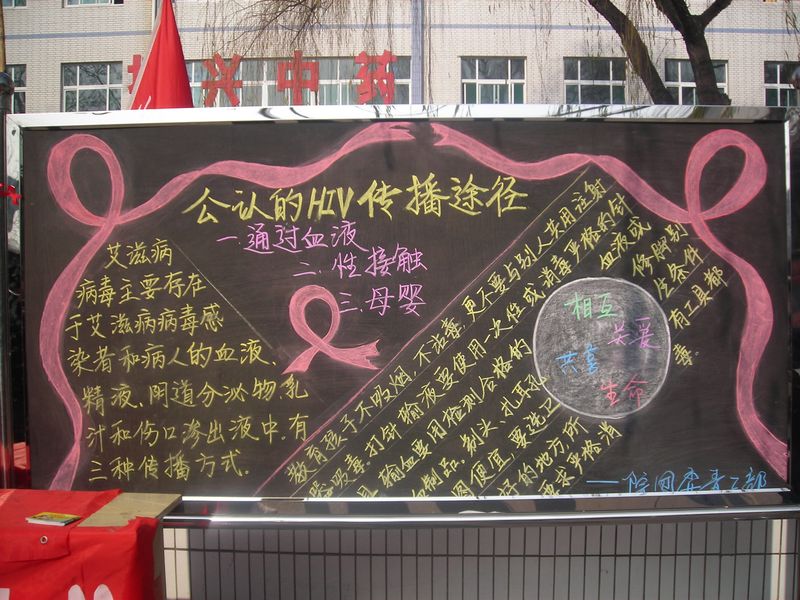 兴中药
公认的HIV传播途径
一.通过血液
二.性接触
三.母婴
艾滋病
病毒主要存在
于艾滋病病毒感
染者和病人的血液、
精液、阴道分泌物、乳
汁和伤口渗出液中.有
三种传播方式.
教育孩子不吸烟,不沾毒,更不要与别人共用注射
器吸毒.打针输液要使用一次性或消毒严格的针
具.输血要用检测合格的血液或
血制品.剃头、扎耳孔修脚别
图便宜,要选卫生条件
好的地方,所有工具都
要求严格消毒.
相互
关爱
共享
生命
——院团